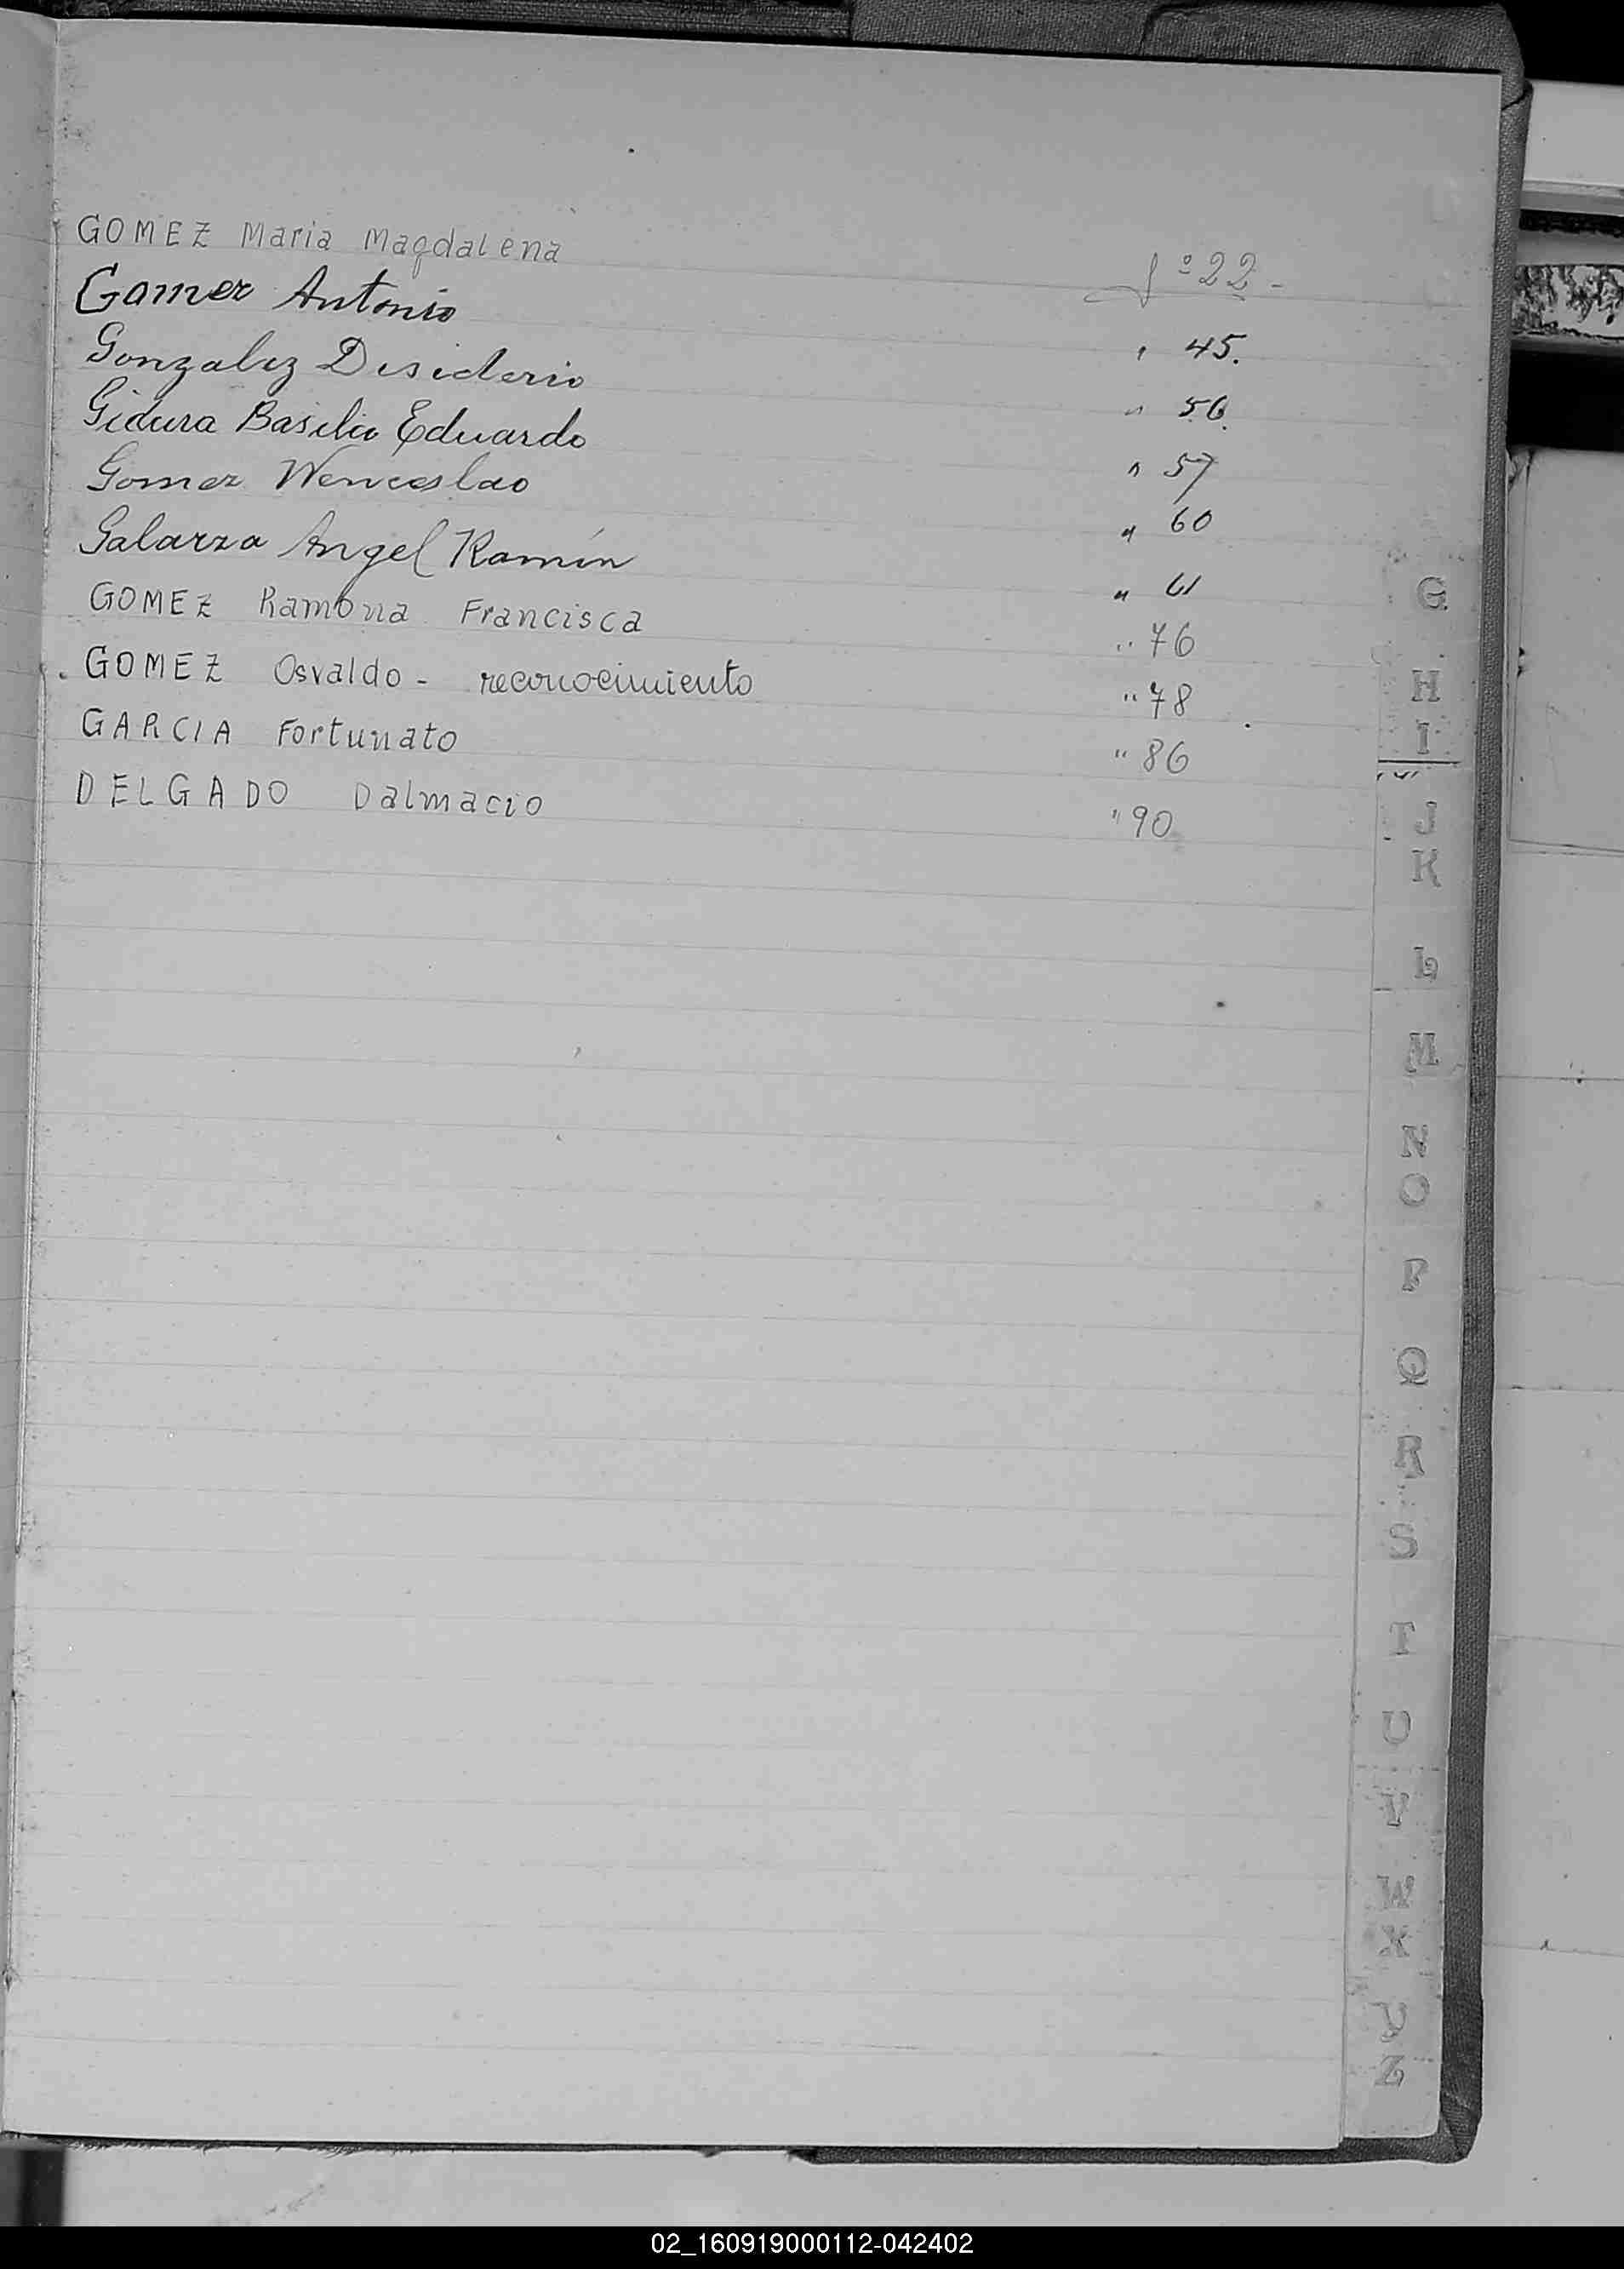 GOMEZ Maria Magdalena fº 22-
Gomez Antonio " 45.
Gonzalez Desiderio " 56.
Gidura Basilio Eduardo " 57
Gomez Wenceslao " 60
Galarza Angel Ramón " 61
GOMEZ Ramona Francisca " 76
GOMEZ Osvaldo - reconocimiento " 78
GARCIA Fortunato " 86
DELGADO Dalmacio " 90
G
H
I
J
K
L
M
N
O
P
Q
R
S
T
U
V
W
X
Y
Z
02_160919000112-042402